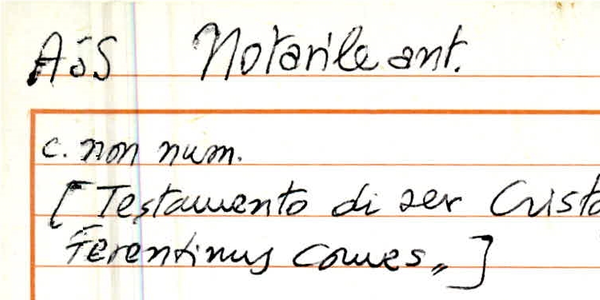 ASS Notarile ant.
c. non num.
[Testamento di ser Cristo
Ferentinus comes„]